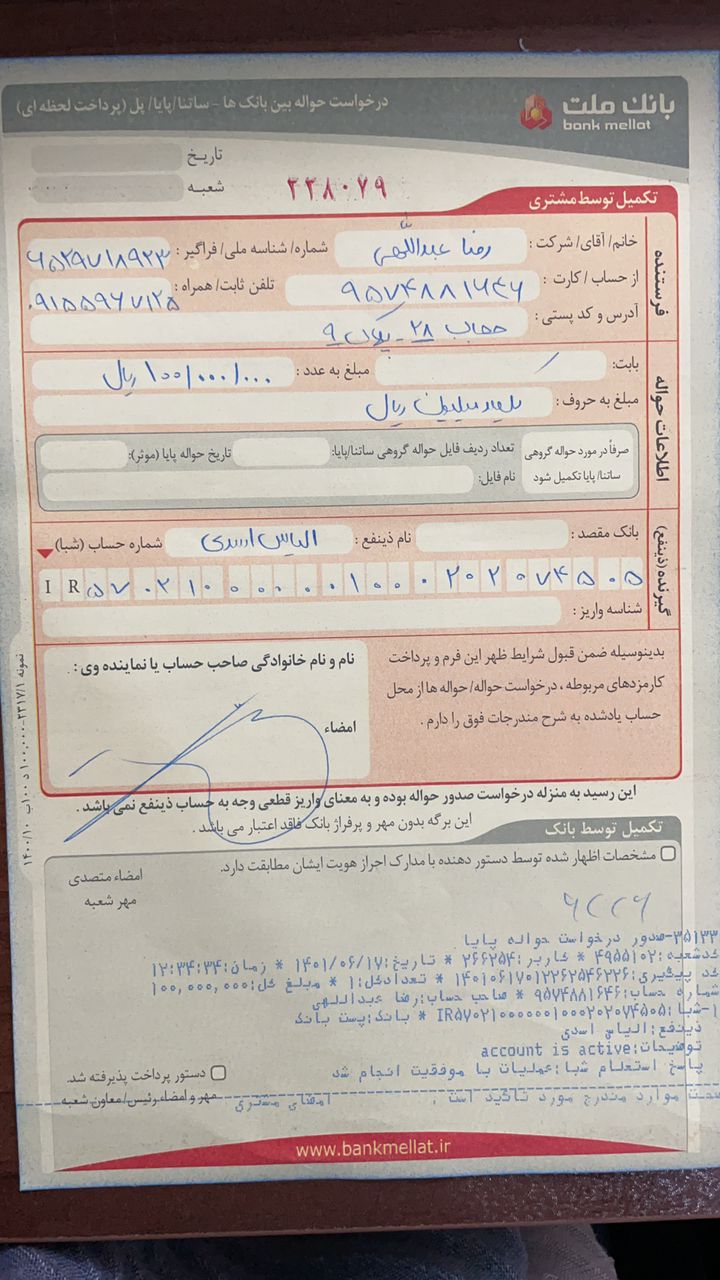 بانک ملت
bank mellat
درخواست حواله بین بانک ها - ساتنا/پایا/ پل (پرداخت لحظه ای)
تاریخ
شعبه
۲۲۸۰۷۹
تکمیل توسط مشتری
فرستنده
خانم/ آقای/ شرکت: رضا عبداللهی شماره/ شناسه ملی/ فراگیر: ۶۵۲۹۷۱۸۹۲۳
از حساب / کارت: ۹۵۷۴۸۸۱۶۴۶ تلفن ثابت/ همراه: ۰۹۱۵۵۹۶۷۱۲۵
آدرس و کد پستی: حجاب ۲۸ - پلاک ۹
اطلاعات حواله
بابت: مبلغ به عدد: ۱۰۰/۰۰۰/۰۰۰ ریال
مبلغ به حروف: یکصد میلیون ریال
صرفاً در مورد حواله گروهی ساتنا/ پایا تکمیل شود
تعداد ردیف فایل حواله گروهی ساتنا/پایا: تاریخ حواله پایا (موثر):
نام فایل:
گیرنده(ذینفع)
بانک مقصد: نام ذینفع: الیاس اسدی شماره حساب (شبا)
IR ۵۷۰۲۱۰۰۰۰۰۰۱۰۰۰۲۰۲۰۷۴۵۰۵
شناسه واریز:
بدینوسیله ضمن قبول شرایط ظهر این فرم و پرداخت
کارمزدهای مربوطه، درخواست حواله/ حواله ها از محل
حساب یادشده به شرح مندرجات فوق را دارم.
نام و نام خانوادگی صاحب حساب یا نماینده وی:
امضاء
این رسید به منزله درخواست صدور حواله بوده و به معنای واریز قطعی وجه به حساب ذینفع نمی باشد.
این برگه بدون مهر و پرفراژ بانک فاقد اعتبار می باشد.
تکمیل توسط بانک
مشخصات اظهار شده توسط دستور دهنده با مدارک احراز هویت ایشان مطابقت دارد.
امضاء متصدی
مهر شعبه
۳۵۱۳۳-صدور درخواست حواله پایا
کدشعبه:۴۹۵۵۱۰۲ * کاربر:۲۶۶۲۵۴ * تاریخ:۱۴۰۱/۰۶/۱۷ * زمان:۱۲:۳۴:۳۴
کد پیگیری:۱۴۰۱۰۶۱۷۰۱۲۲۶۲۵۴۶۲۲۶ * تعدادکل:۱ * مبلغ کل:۱۰۰,۰۰۰,۰۰۰
شماره حساب:۹۵۷۴۸۸۱۶۴۶ * صاحب حساب:رضا عبداللهی
۱-شبا:IR۵۷۰۲۱۰۰۰۰۰۰۱۰۰۰۲۰۲۰۷۴۵۰۵ * بانک:پست بانک
ذینفع:الیاس اسدی
توضیحات:account is active
پاسخ استعلام شبا:عملیات با موفقیت انجام شد
صحت موارد مندرج مورد تائید است. امضای مشتری
دستور پرداخت پذیرفته شد.
مهر و امضاء رئیس/ معاون شعبه
www.bankmellat.ir